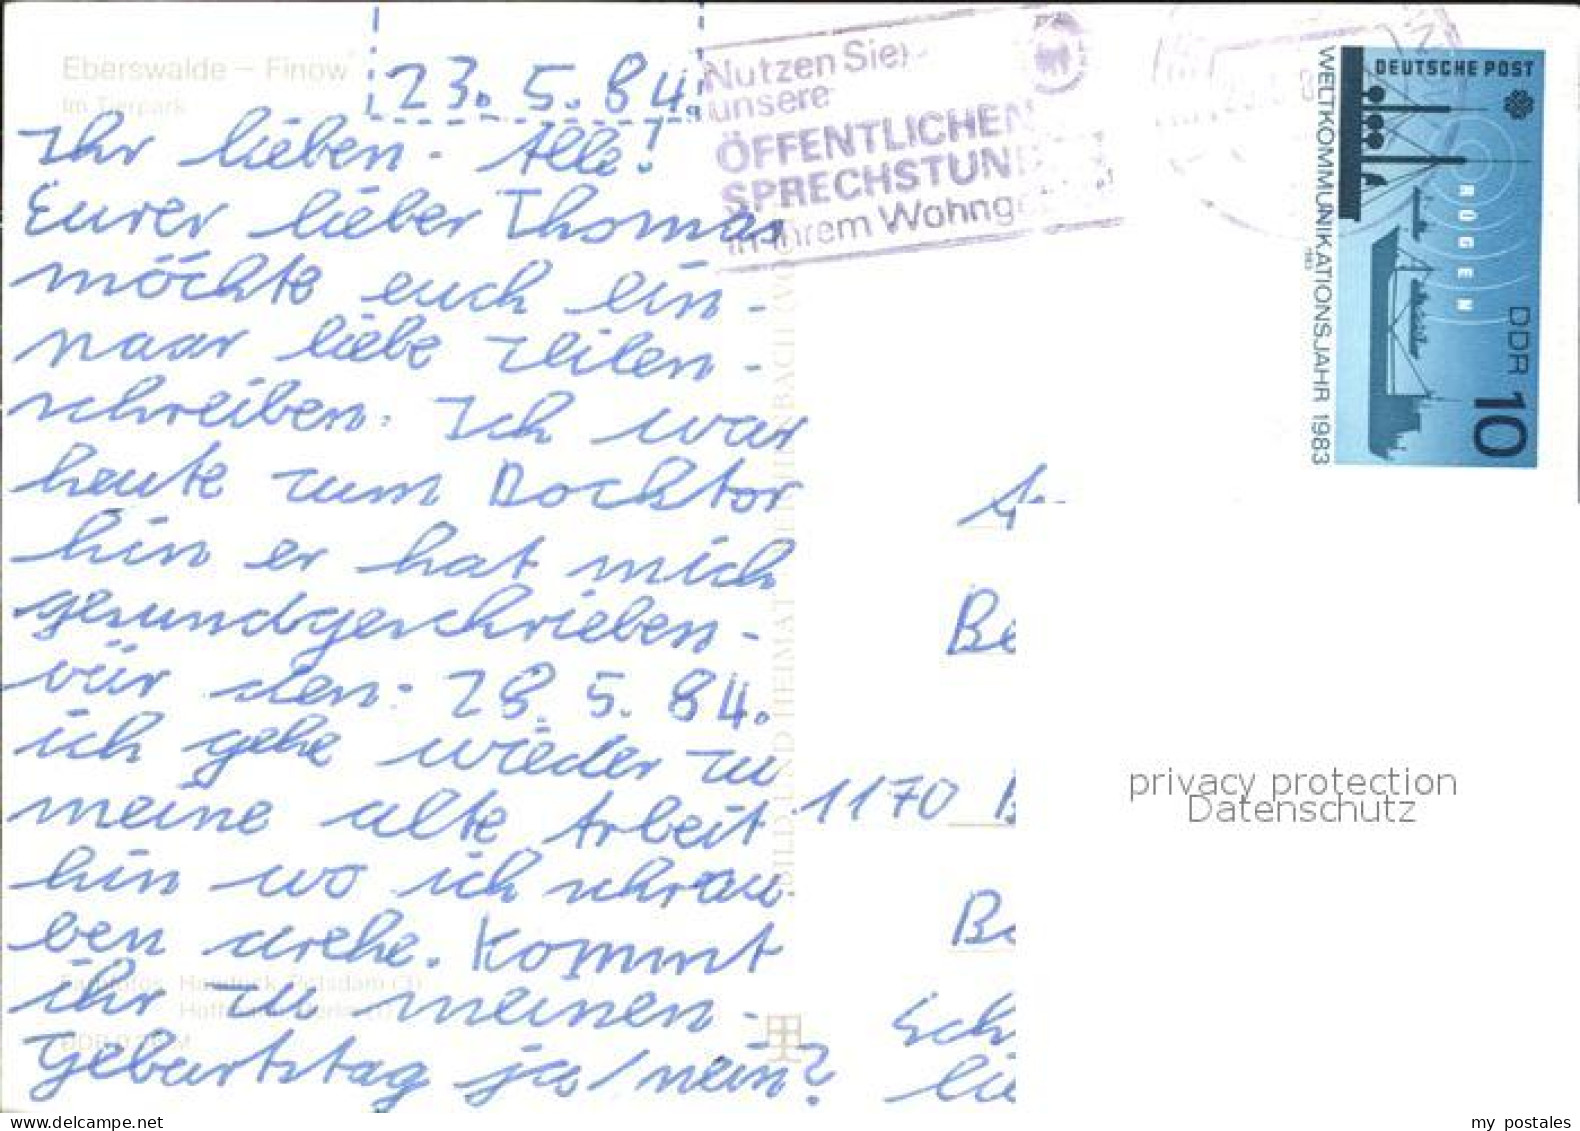 Eberswalde – Finow
Im Tierpark
23. 5. 84.
Ihr lieben - Alle!
Eurer lieber Thomas
möchte euch ein-
naar liebe zeilen-
schreiben. Ich war
heute zum Docktor
hin er hat mich
gesundgeschrieben-
vür den: 28. 5. 84.
ich gehe wieder zu
meine alte Arbeit
hin wo ich schrau-
ben drehe. Kommt
ihr zu meinen-
Geburtstag ja/nein?
Nutzen Sie
unsere
ÖFFENTLICHEN
SPRECHSTUN
in Ihrem Wohnge
DEUTSCHE POST
WELTKOMMUNIKATIONSJAHR 1983
1983
RÜGEN
DDR 10
BILD UND HEIMAT REICHENBACH (VOGTL)
Be
1170 B
Be
Sch
lie
privacy protection
Datenschutz
www.ansichtskarten-center.de
my postales